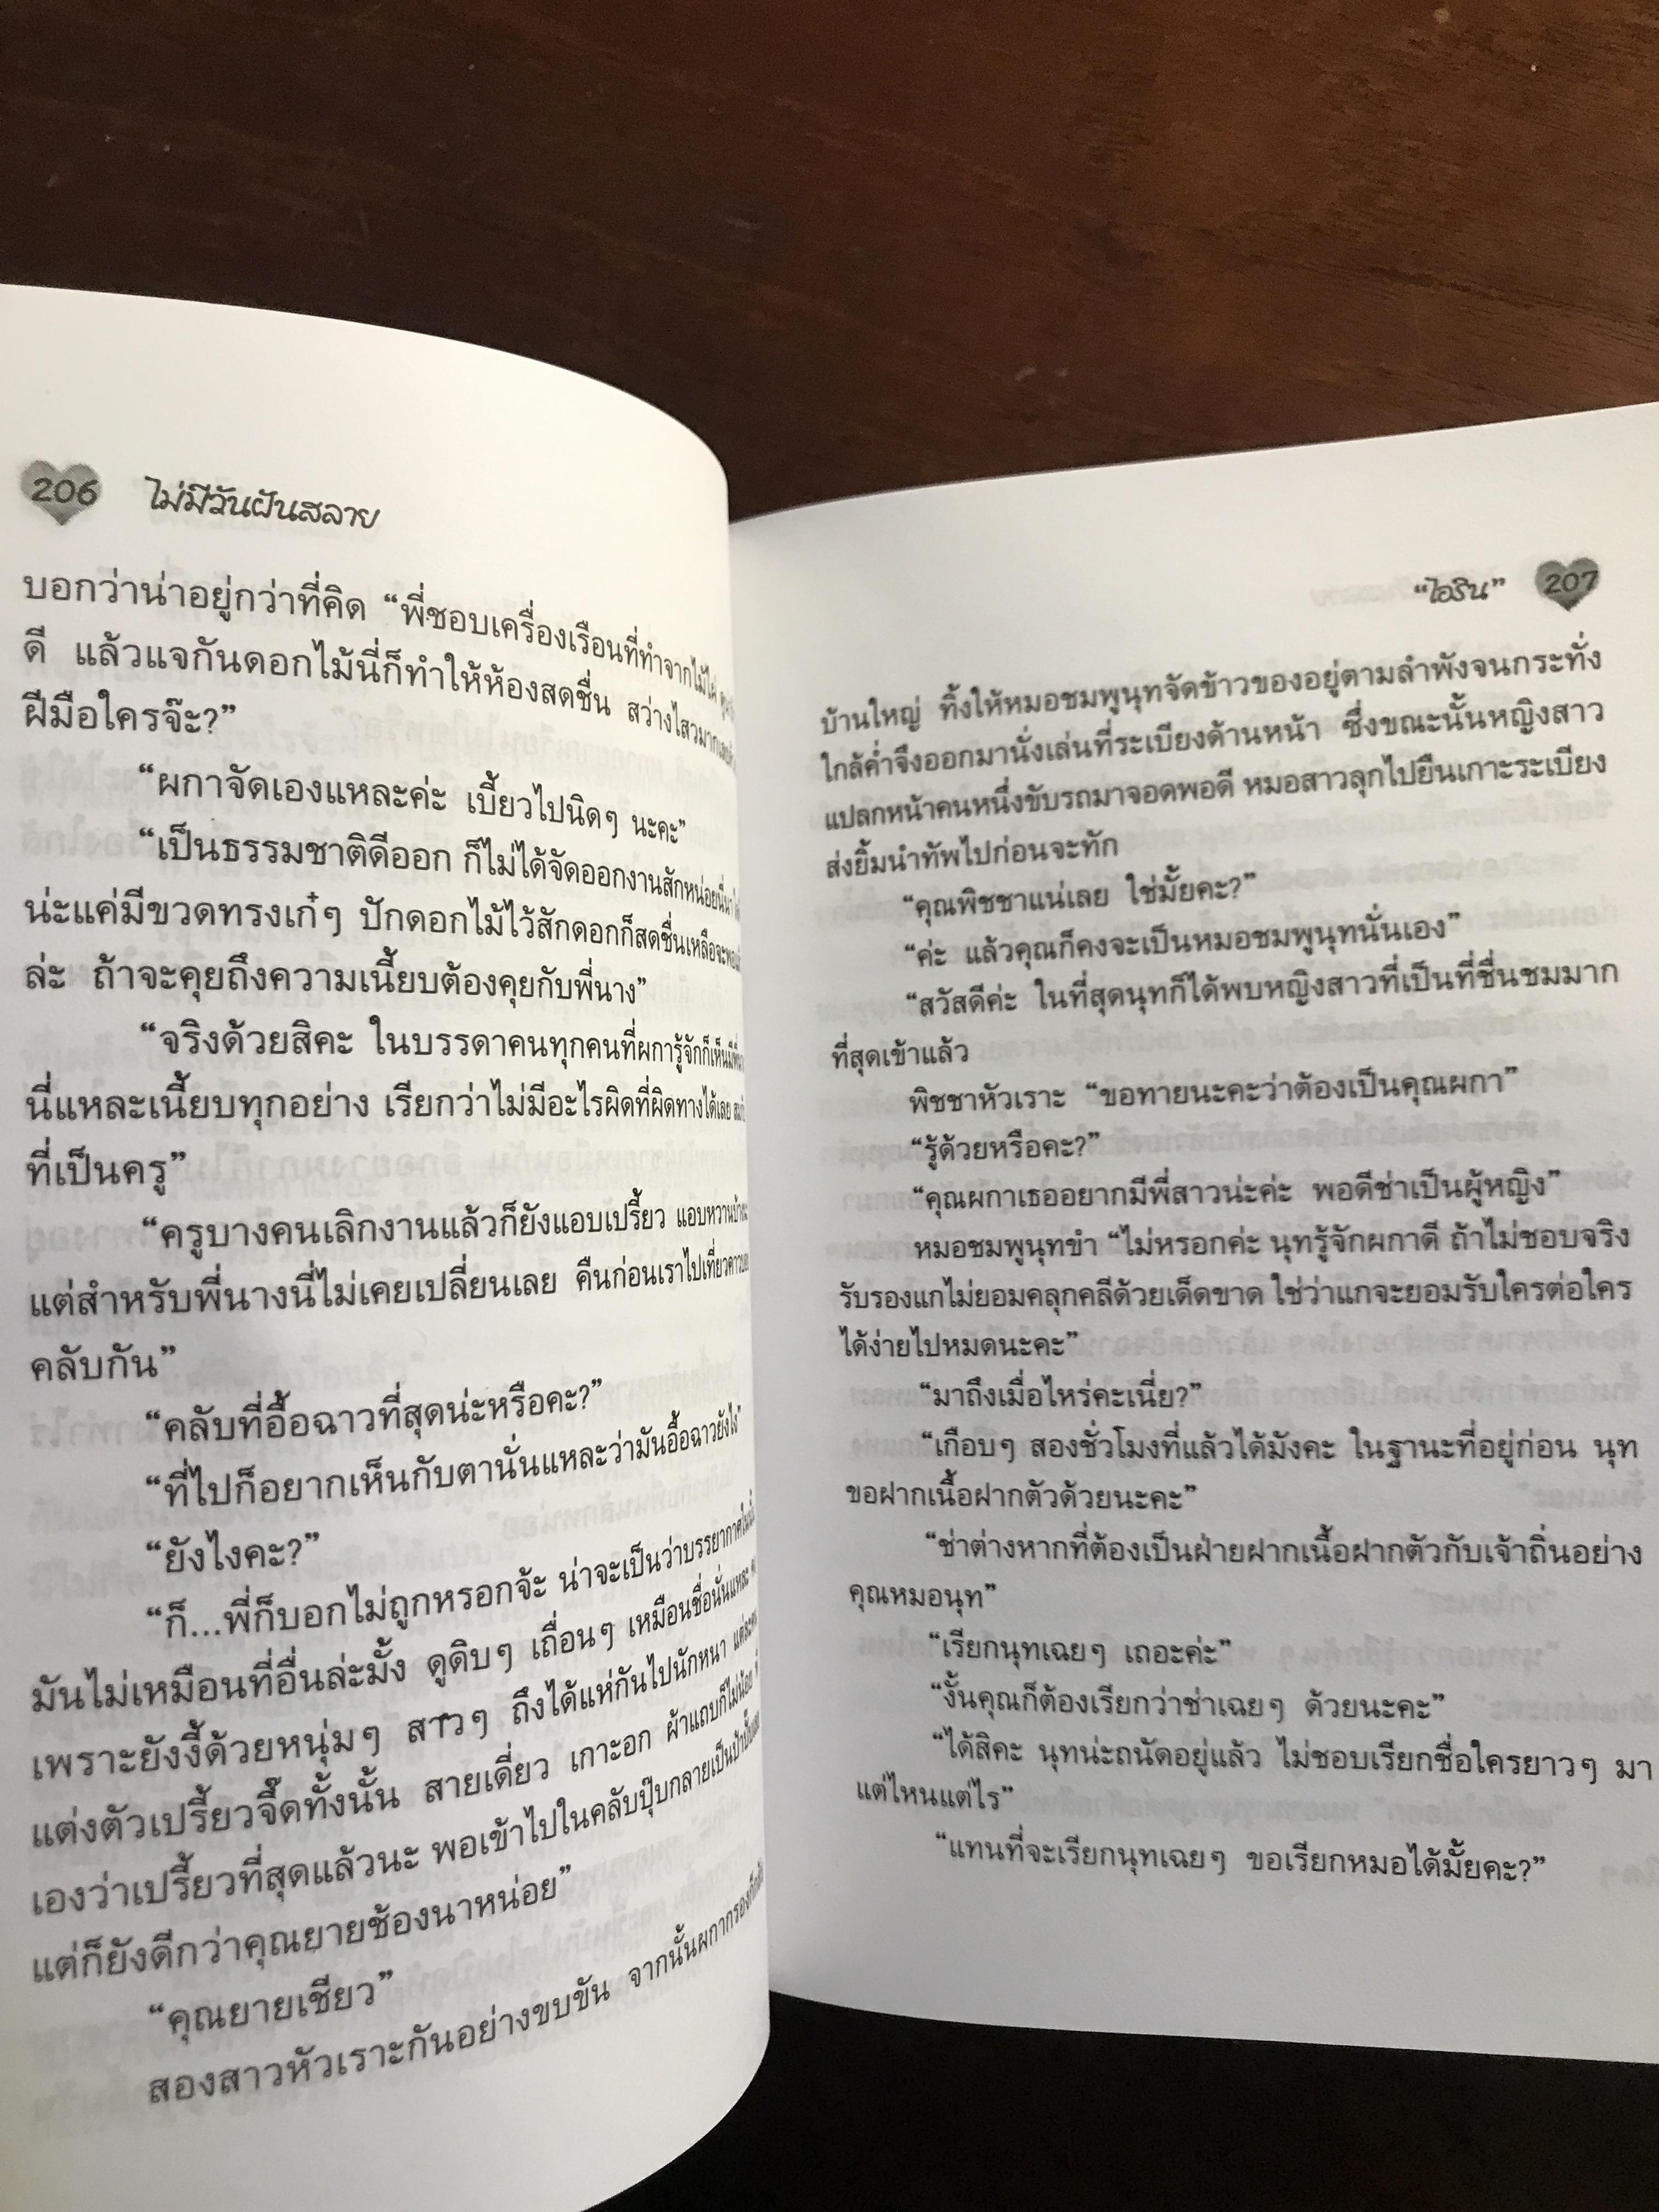 206 ไม่มีวันฝันสลาย
บอกว่าน่าอยู่กว่าที่คิด “พี่ชอบเครื่องเรือนที่ทำจากไม้ไผ่
ดี แล้วแจกันดอกไม้นี่ก็ทำให้ห้องสดชื่น สว่างไสวมาก
ฝีมือใครจ๊ะ?”
“ผกาจัดเองแหละค่ะ เบี้ยวไปนิดๆ นะคะ”
“เป็นธรรมชาติดีออก ก็ไม่ได้จัดออกงานสักหน่อยนี่นา
น่ะแค่มีขวดทรงเก๋ๆ ปักดอกไม้ไว้สักดอกก็สดชื่นเหลือจะพอ
ล่ะ ถ้าจะคุยถึงความเนี้ยบต้องคุยกับพี่นาง”
“จริงด้วยสิคะ ในบรรดาคนทุกคนที่ผการู้จักก็เห็นมี
นี่แหละเนี้ยบทุกอย่าง เรียกว่าไม่มีอะไรผิดที่ผิดทางได้เลย
ที่เป็นครู”
“ครูบางคนเลิกงานแล้วก็ยังแอบเปรี้ยว แอบหวานบ้าง
แต่สำหรับพี่นางนี่ไม่เคยเปลี่ยนเลย คืนก่อนเราไปเที่ยว
คลับกัน”
“คลับที่อื้อฉาวที่สุดน่ะหรือคะ?”
“ที่ไปก็อยากเห็นกับตานั่นแหละว่ามันอื้อฉาวยังไง”
“ยังไงคะ?”
“ก็...พี่ก็บอกไม่ถูกหรอกจ้ะ น่าจะเป็นว่าบรรยากาศใน
มันไม่เหมือนที่อื่นล่ะมั้ง ดูดิบๆ เถื่อนๆ เหมือนชื่อนั่นแหละ
เพราะยังงี้ด้วยหนุ่มๆ สาวๆ ถึงได้แห่กันไปนักหนา
แต่งตัวเปรี้ยวจี๊ดทั้งนั้น สายเดี่ยว เกาะอก ผ้าแถบก็ไม่น้อย
เองว่าเปรี้ยวที่สุดแล้วนะ พอเข้าไปในคลับปุ๊บกลายเป็นป้า
แต่ก็ยังดีกว่าคุณยายช้องนาหน่อย”
“คุณยายเชียว”
สองสาวหัวเราะกันอย่างขบขัน จากนั้นผกากรอง
“ไอริน” 207
บ้านใหญ่ ทิ้งให้หมอชมพูนุทจัดข้าวของอยู่ตามลำพังจนกระทั่ง
ใกล้ค่ำจึงออกมานั่งเล่นที่ระเบียงด้านหน้า ซึ่งขณะนั้นหญิงสาว
แปลกหน้าคนหนึ่งขับรถมาจอดพอดี หมอสาวลุกไปยืนเกาะระเบียง
ส่งยิ้มนำทัพไปก่อนจะทัก
“คุณพิชชาแน่เลย ใช่มั้ยคะ?”
“ค่ะ แล้วคุณก็คงจะเป็นหมอชมพูนุทนั่นเอง”
“สวัสดีค่ะ ในที่สุดนุทก็ได้พบหญิงสาวที่เป็นที่ชื่นชมมาก
ที่สุดเข้าแล้ว
พิชชาหัวเราะ “ขอทายนะคะว่าต้องเป็นคุณผกา”
“รู้ด้วยหรือคะ?”
“คุณผกาเธออยากมีพี่สาวน่ะค่ะ พอดีช่าเป็นผู้หญิง”
หมอชมพูนุทขำ “ไม่หรอกค่ะ นุทรู้จักผกาดี ถ้าไม่ชอบจริง
รับรองแกไม่ยอมคลุกคลีด้วยเด็ดขาด ใช่ว่าแกจะยอมรับใครต่อใคร
ได้ง่ายไปหมดนะคะ”
“มาถึงเมื่อไหร่คะเนี่ย?”
“เกือบๆ สองชั่วโมงที่แล้วได้มังคะ ในฐานะที่อยู่ก่อน นุท
ขอฝากเนื้อฝากตัวด้วยนะคะ”
“ช่าต่างหากที่ต้องเป็นฝ่ายฝากเนื้อฝากตัวกับเจ้าถิ่นอย่าง
คุณหมอนุท”
“เรียกนุทเฉยๆ เถอะค่ะ”
“งั้นคุณก็ต้องเรียกว่าช่าเฉยๆ ด้วยนะคะ”
“ได้สิคะ นุทน่ะถนัดอยู่แล้ว ไม่ชอบเรียกชื่อใครยาวๆ มา
แต่ไหนแต่ไร”
“แทนที่จะเรียกนุทเฉยๆ ขอเรียกหมอได้มั้ยคะ?”